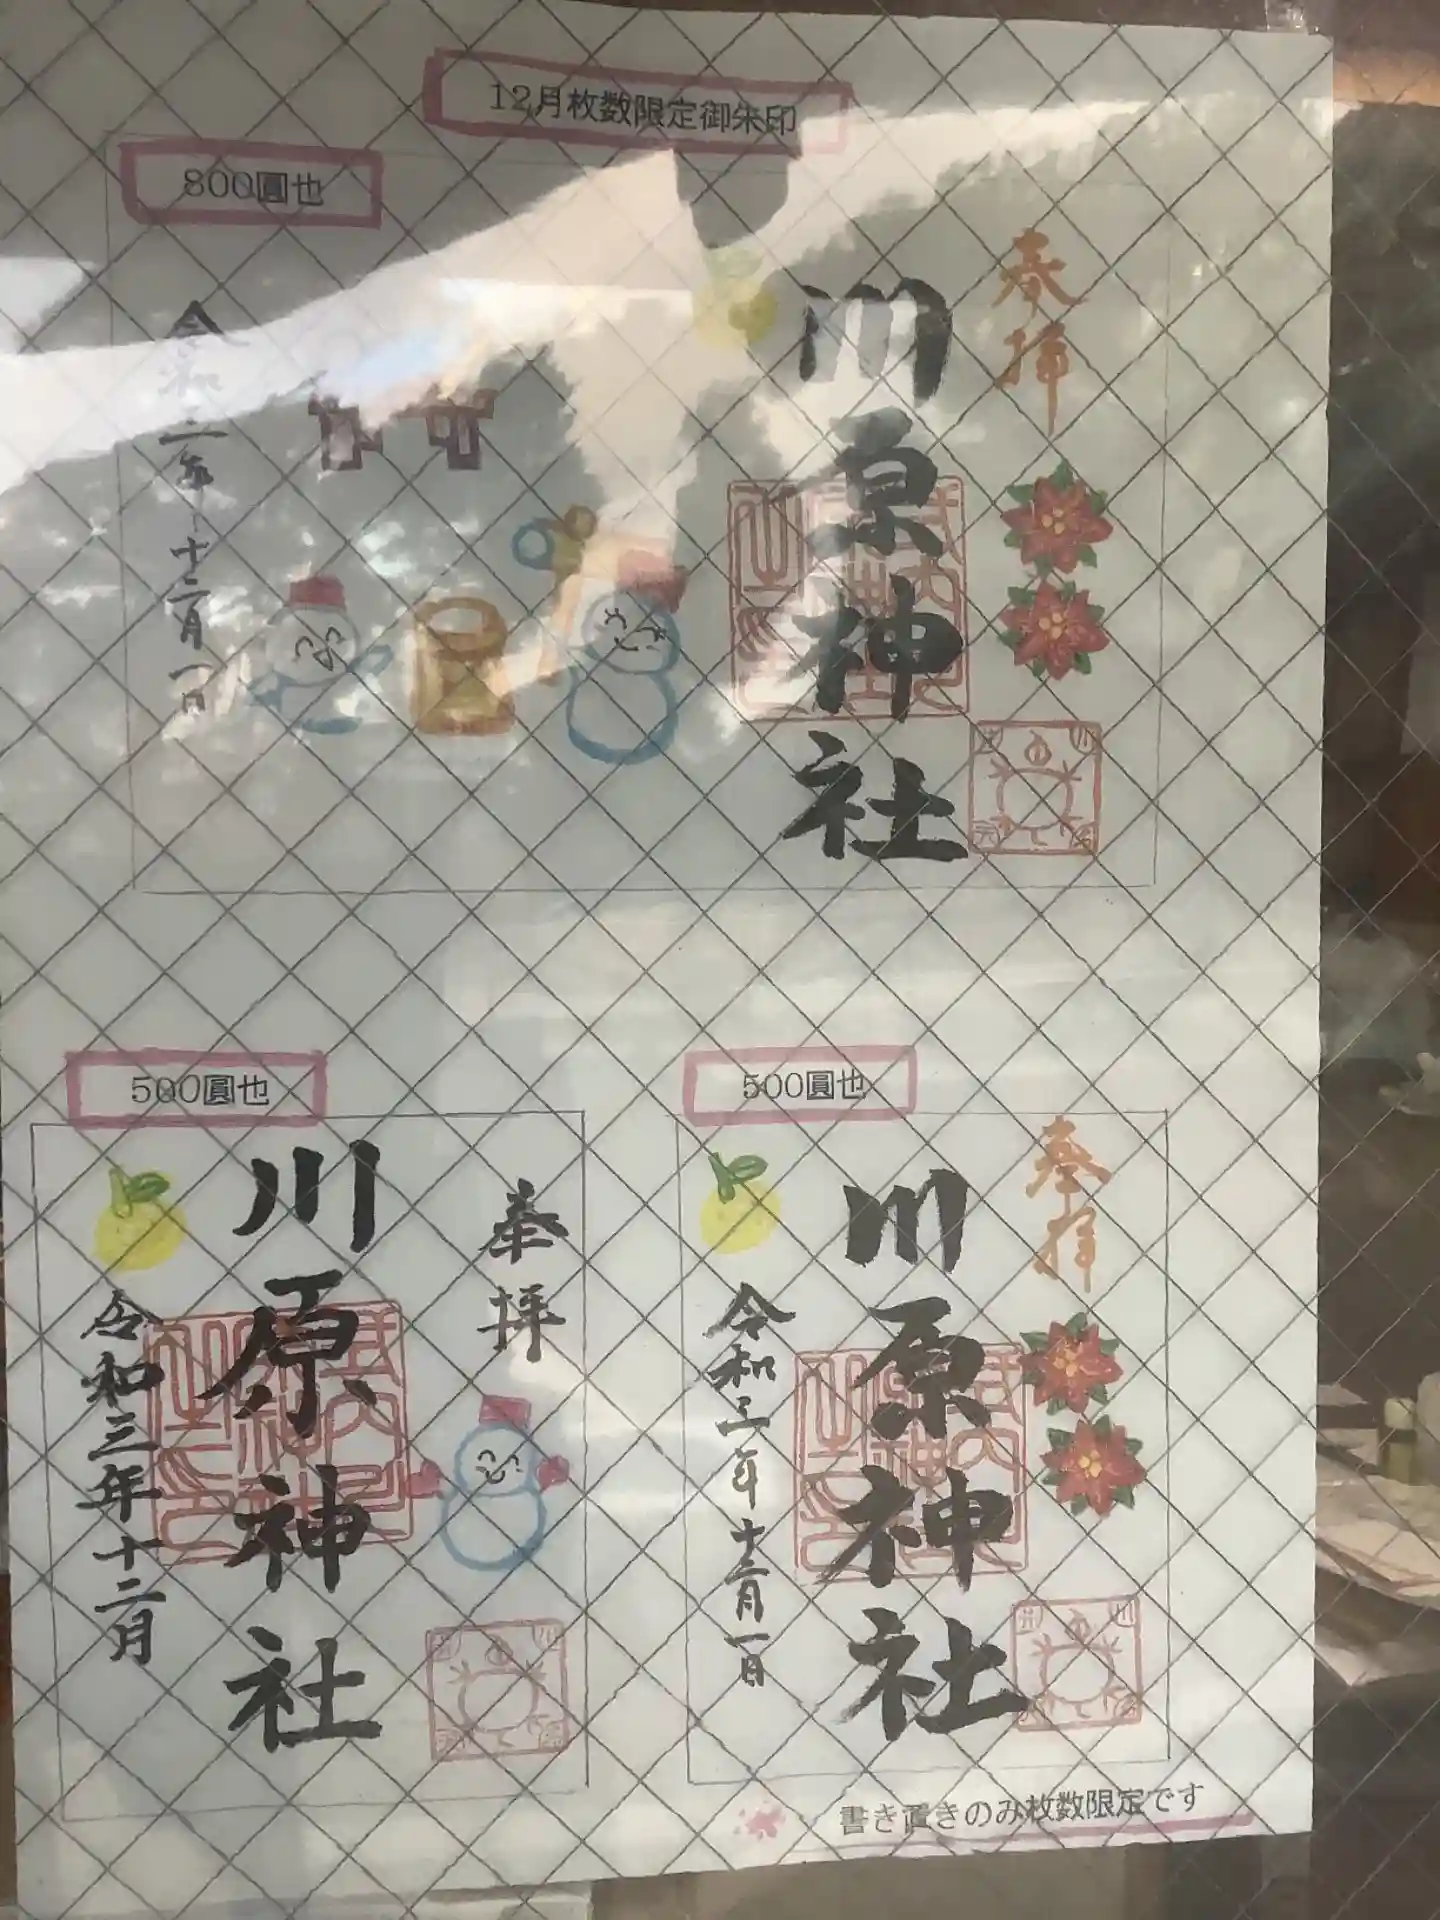 12月枚数限定御朱印
800圓也
奉拝
川原神社
令和三年十二月一日
500圓也
奉拝
川原神社
令和三年十二月
500圓也
奉拝
川原神社
令和三年十二月一日
書き置きのみ枚数限定です